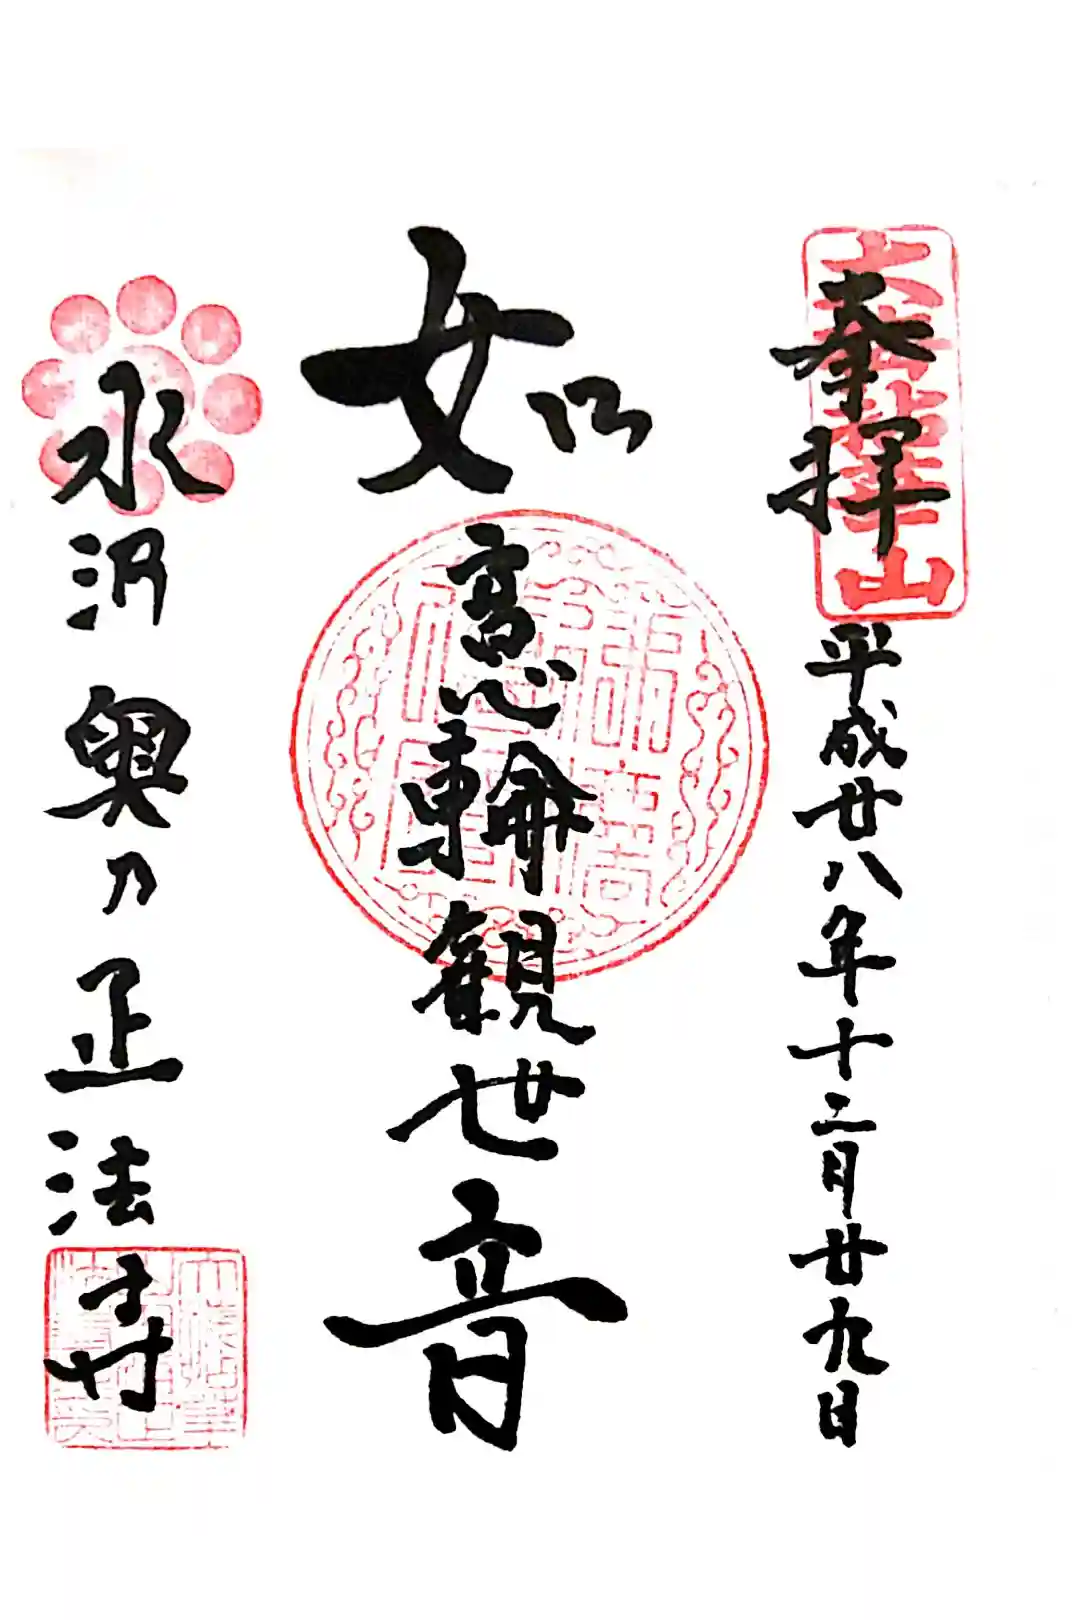 大梅拈華山
奉拝 平成廿八年十二月廿九日
如意輪観世音
水沢 奥乃正法寺